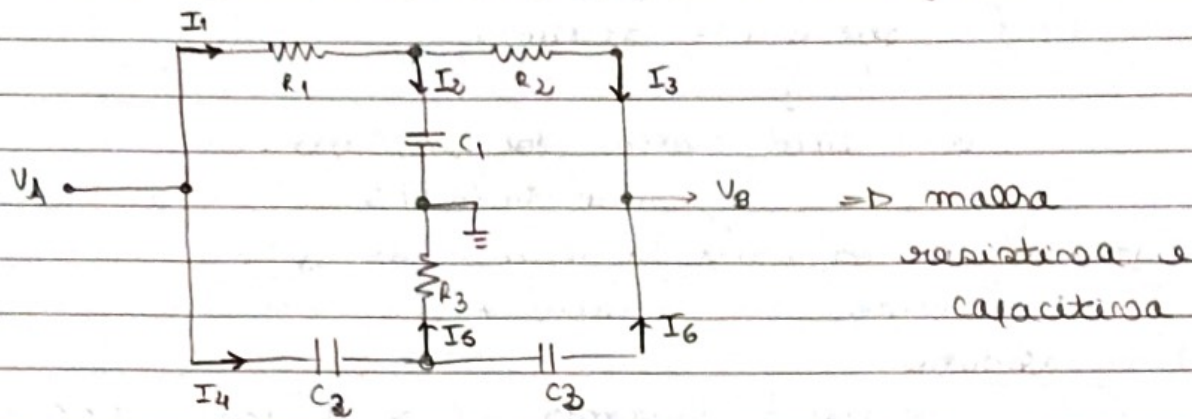 I1
R1
I2
R2
I3
C1
VA
VB
=D malha
resistiva e
capacitiva
R3
I5
I6
I4
C2
C3